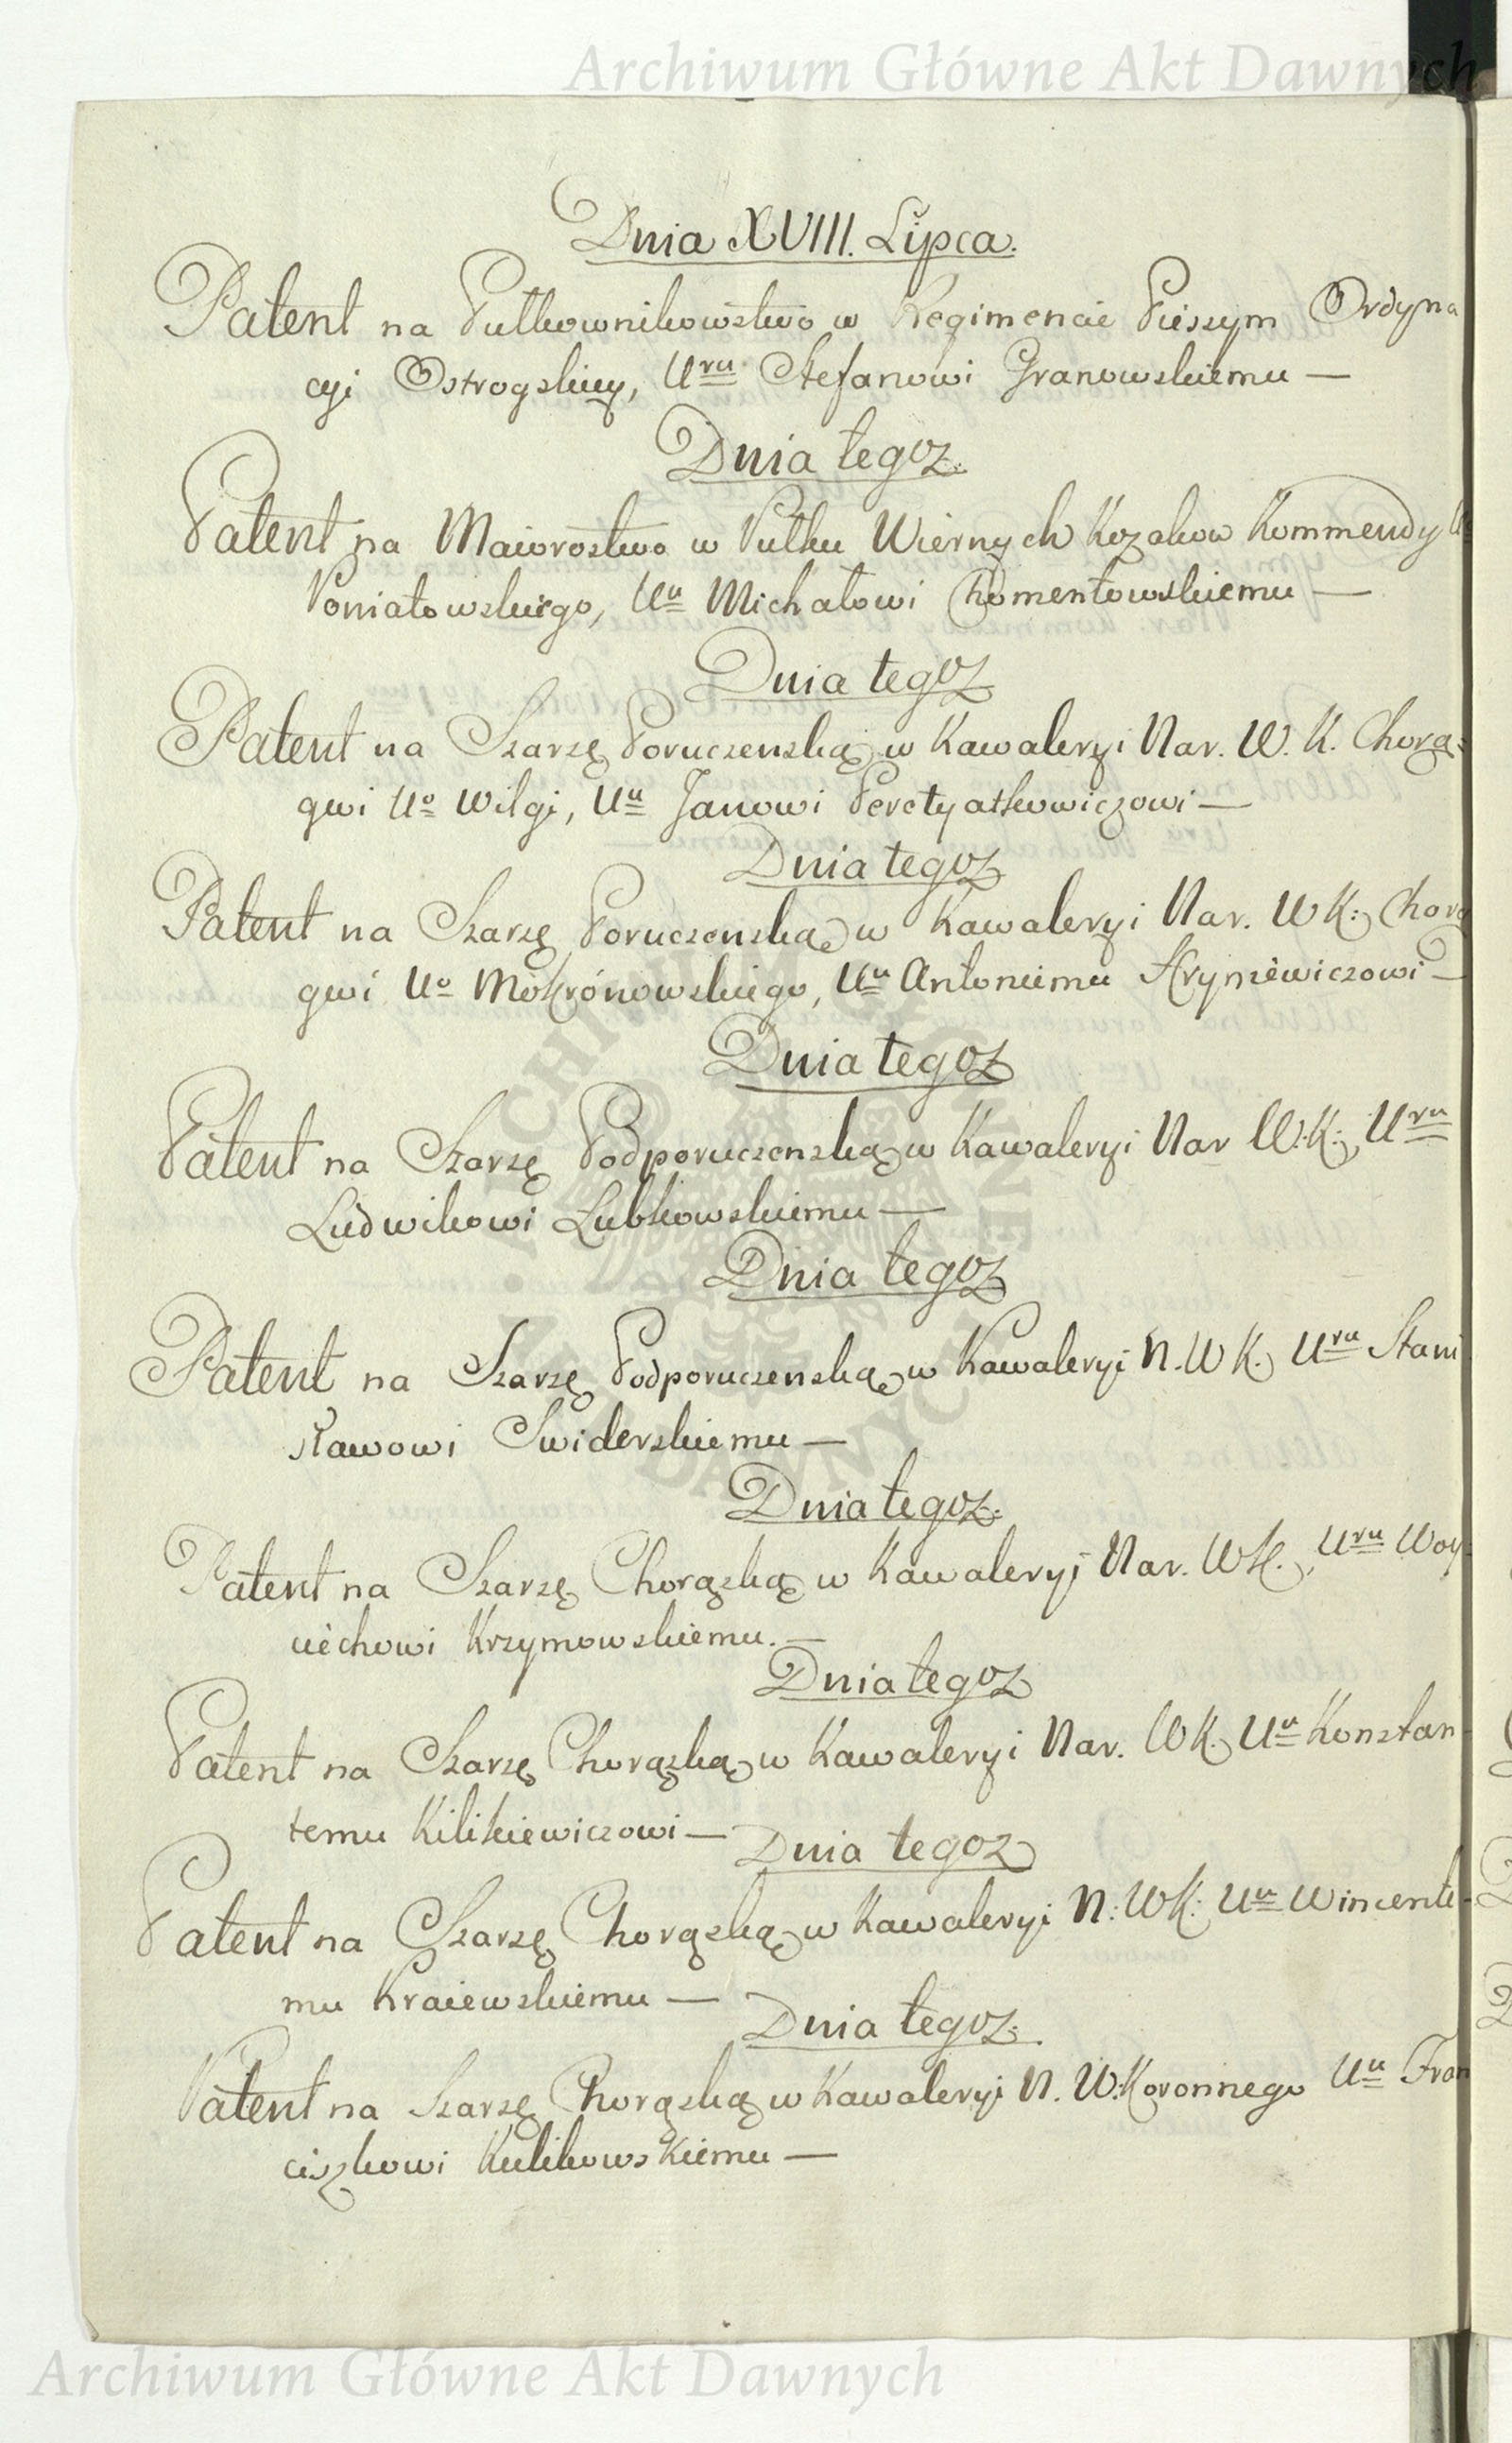 Archiwum Główne Akt Dawnych
Dnia XVIII. Lipca.
Patent na Pułkownikowstwo w Regimencie Pieszym Ordyna
cyi Ostrogskiey, Uru Stefanowi Granowskiemu —
Dnia tegoz.
Patent na Maiorostwo w Pułku Wiernych Kozakow Kommendy
Poniatowskiego, Uu Michałowi Chomentowskiemu —
Dnia tegoz
Patent na Szarzę Poruczenską w Kawaleryi Nar. W. K. Chorą=
gwi Uo Wilgi, Uu Janowi Peretyatkowiczowi —
Dnia tegoz
Patent na Szarzę Poruczenską w Kawaleryi Nar. WK: Chorą
gwi Uo Mokronowskiego, Uu Antoniemu Hryniewiczowi —
Dnia tegoz
Patent na Szarzę Podporuczenską w Kawaleryi Nar W:K:, Uru
Ludwikowi Lubkowskiemu —
Dnia tegoz
Patent na Szarzę Podporuczenską w Kawaleryi N. W K. Uru Stani
sławowi Swiderskiemu —
Dnia tegoz.
Patent na Szarzę Chorąską w Kawaleryi Nar. WK., Uru Woy=
ciechowi Krzymowskiemu. —
Dnia tegoz
Patent na Szarzę Chorąską w Kawaleryi Nar. WK. Uu Konstan
temu Kilikiewiczowi —
Dnia tegoz
Patent na Szarzę Chorąską w Kawaleryi N: WK: Uu Wincente-
mu Kraiewskiemu —
Dnia tegoz.
Patent na Szarzę Chorąską w Kawaleryi N. W: Koronnego Uu Fran
ciszkowi Kulikowskiemu —
Archiwum Główne Akt Dawnych